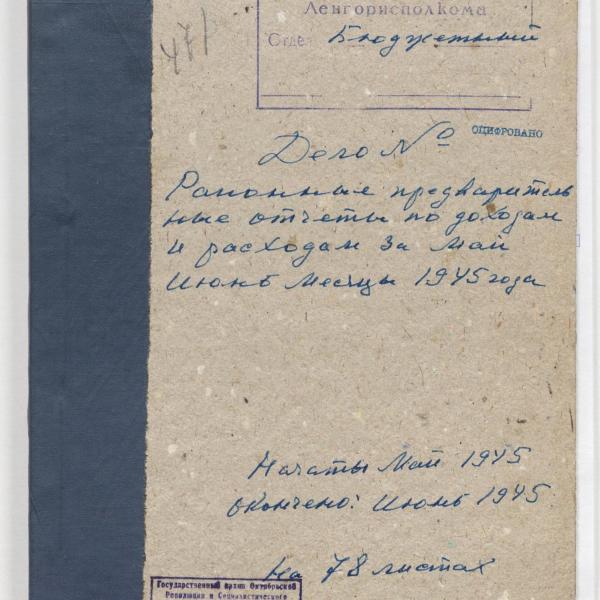 471
Ленгорисполкома
Отдел Бюджетный
ОЦИФРОВАНО
Дело №
Районные предваритель
ные отчеты по доходам
и расходам за Май
Июнь месяцы 1945 года
Начаты Май 1945
окончено: Июнь 1945
на 78 листах
Государственный архив Октябрьской
Революции и Социалистического